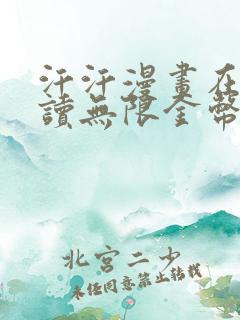 汗汗漫畫在
讀無限金幣
北宮二少
未任同意禁止转载